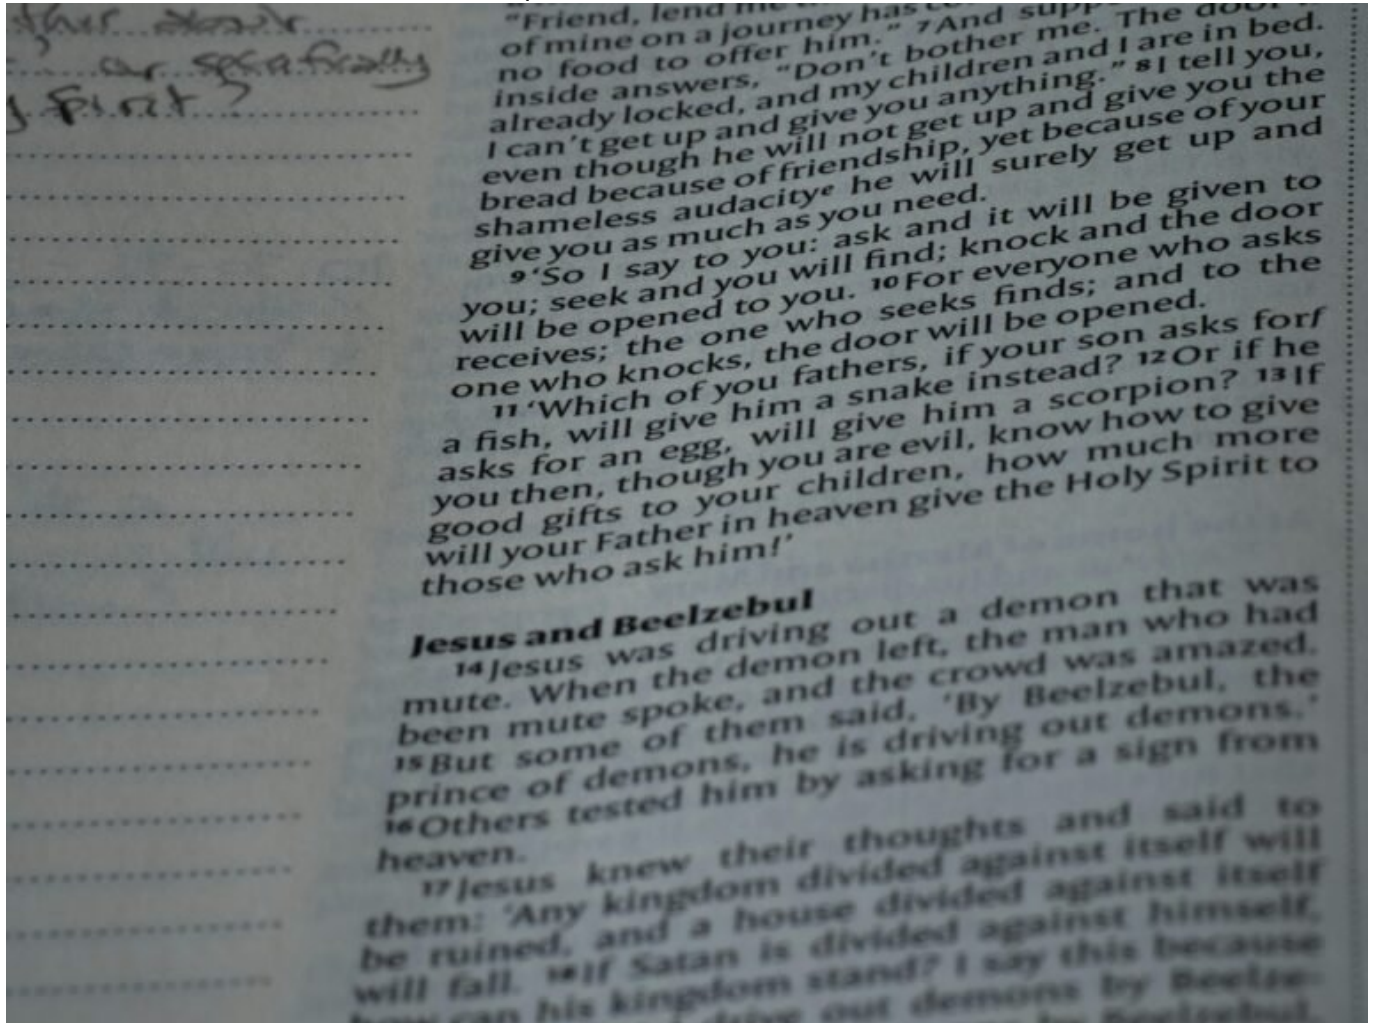 or specifically
Spirit?
"Friend, lend me
of mine on a journey has
no food to offer him." 7And
inside answers, "Don't bother me. The door
already locked, and my children and I are in bed.
I can't get up and give you anything." 8I tell you,
even though he will not get up and give you the
bread because of friendship, yet because of your
shameless audacitye he will surely get up and
give you as much as you need.
9'So I say to you: ask and it will be given to
you; seek and you will find; knock and the door
will be opened to you. 10For everyone who asks
receives; the one who seeks finds; and to the
one who knocks, the door will be opened.
11'Which of you fathers, if your son asks forf
a fish, will give him a snake instead? 12Or if he
asks for an egg, will give him a scorpion? 13If
you then, though you are evil, know how to give
good gifts to your children, how much more
will your Father in heaven give the Holy Spirit to
those who ask him!'
Jesus and Beelzebul
14Jesus was driving out a demon that was
mute. When the demon left, the man who had
been mute spoke, and the crowd was amazed.
15But some of them said, 'By Beelzebul, the
prince of demons, he is driving out demons.'
16Others tested him by asking for a sign from
heaven.
17Jesus knew their thoughts and said to
them: 'Any kingdom divided against itself will
be ruined, and a house divided against itself
will fall. 18If Satan is divided against himself,
how can his kingdom stand? I say this because
drive out demons by Beelze-
by Beelzebul,